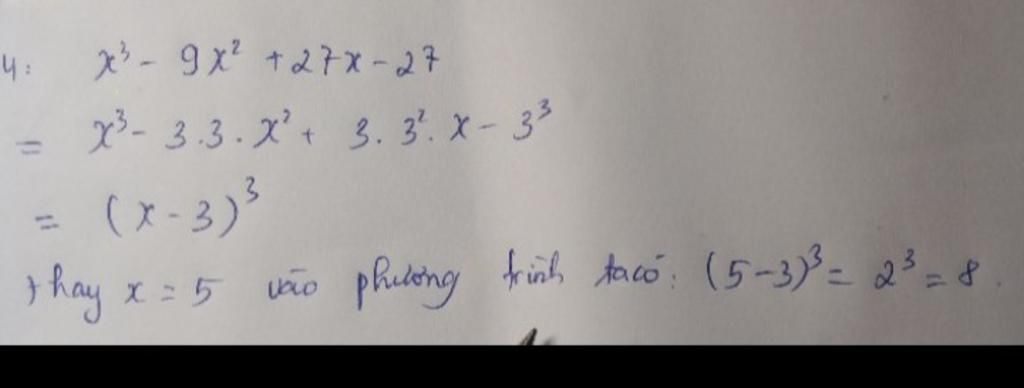 4: x³ - 9x² + 27x - 27
= x³ - 3.3.x² + 3.3².x - 3³
= (x - 3)³
thay x = 5 vào phương trình ta có: (5-3)³ = 2³ = 8.